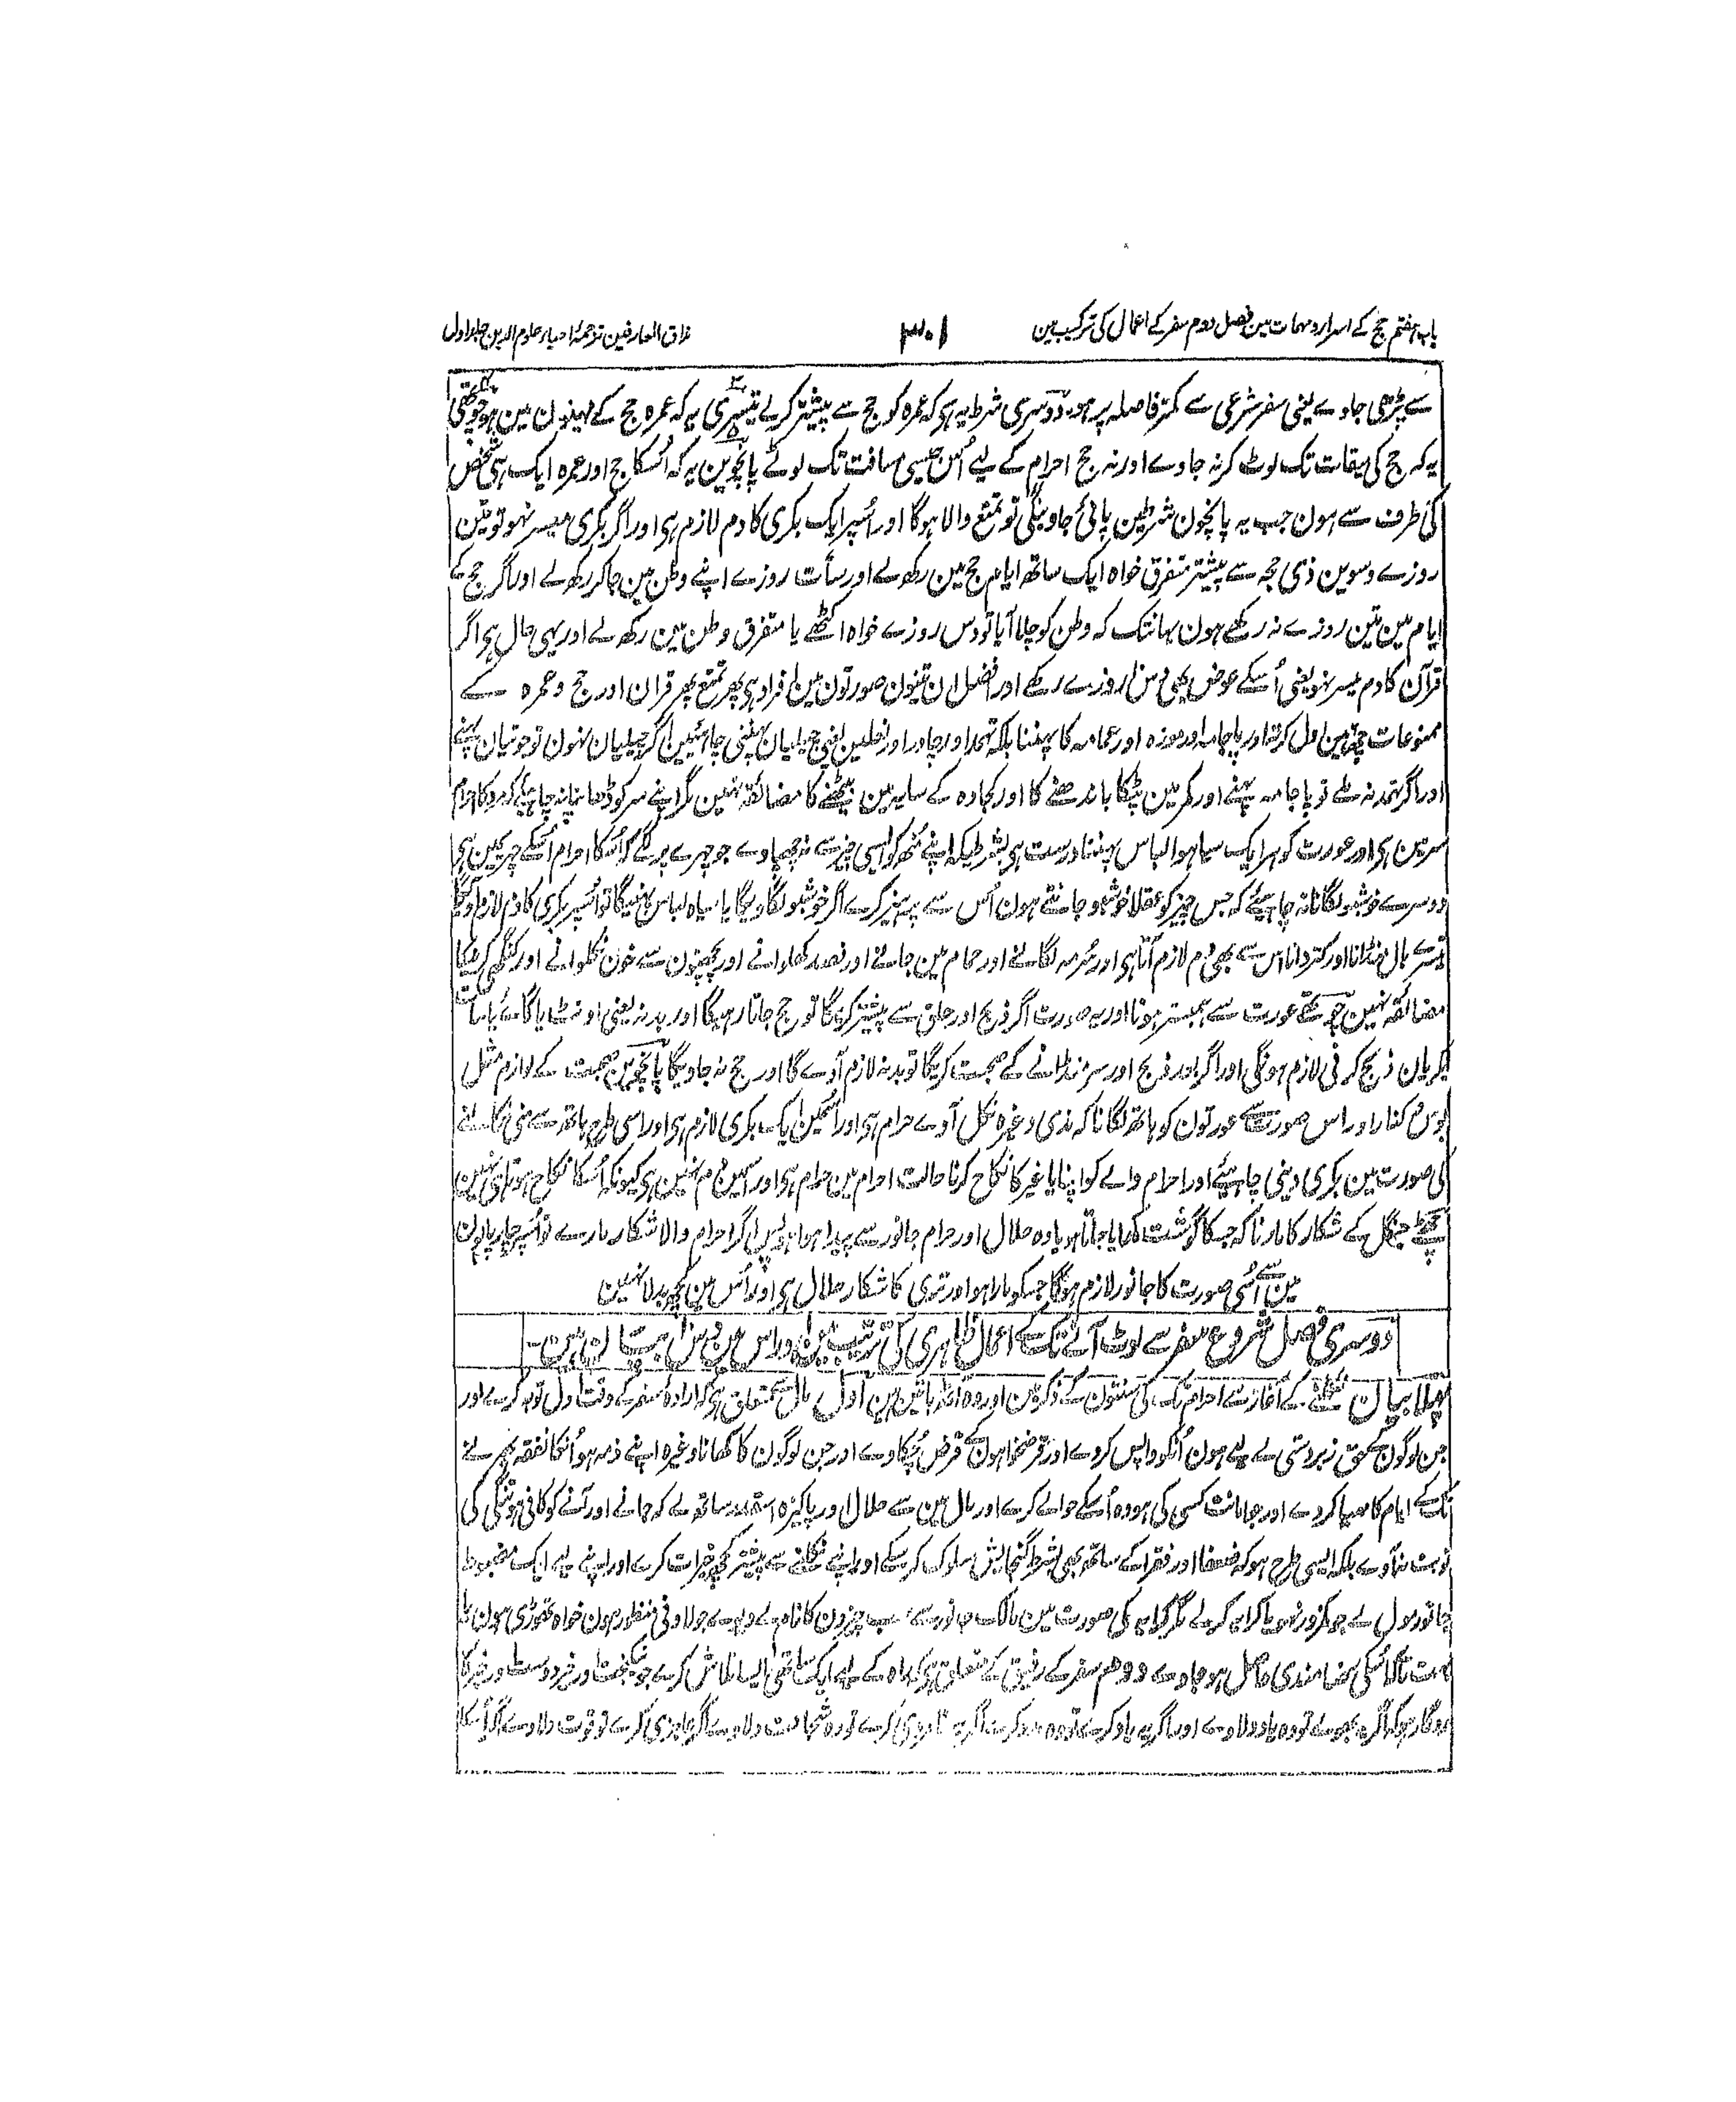 باب ہفتم حج کے اسرار و مہمات مین فصل دوم سفر کے اعمال کی ترکیب مین
۳۰۱
مذاق العارفین ترجمۂ احیاء علوم الدین جلد اول
سے پڑھی جاوے یعنی سفر شرعی سے کمتر فاصلہ پر ہو۔ دوسری شرط یہ ہی کہ عمرہ کو حج سے پیشتر کرلے تیسری یہ کہ عمرہ حج کے مہینون مین ہو چوتھی
یہ کہ حج کی میقات تک لوٹ کر نہ جاوے اور نہ حج احرام کے لیے اُس جیسی مسافت تک لوٹے پانچوین یہ کہ اُسکا حج اور عمرہ ایک ہی شخص
کی طرف سے ہون جب یہ پانچون شرطین پائی جاوینگی تو تمتع والا ہوگا اور اُسپر ایک بکری کا دم لازم ہی اور اگر بکری میسر نہو تو تین
روزے دسوین ذی حجہ سے پیشتر متفرق خواہ ایک ساتھ ایام حج مین رکھ لے اور سات روزے اپنے وطن مین جا کر رکھ لے اور اگر حج کے
ایام مین تین روزے نہ رکھے ہون یہانتک کہ وطن کو چلا آیا تو دس روزے خواہ اکٹھے یا متفرق وطن مین رکھ لے اور یہی حال ہی اگر
قرآن کا دم میسر نہو یعنی اُسکے عوض بھی دس روزے رکھے اور افضل ان تینون صورتون مین افراد ہی پھر تمتع پھر قران اور حج و عمرہ کے
ممنوعات چھ ہین اول کرتہ اور پاجامہ اور موزہ اور عمامہ کا پہننا بلکہ تہمد اور چادر اور نعلین یعنی چپلیان پہننی چاہئین اگر چپلیان نہون تو جوتیان پہنے
اور اگر تہمد نہ ملے تو پاجامہ پہنے اور کمر مین پٹکا باندھنے کا اور کجاوہ کے سایہ مین بیٹھنے کا مضائقہ نہین مگر اپنے سر کو ڈھانپنا نہ چاہیے کہ مرد کا احرام
سر مین ہی اور عورت کو ہر ایک سیا ہوا لباس پہننا درست ہی بشرطیکہ اپنے مُنھ کو ایسی چیز سے نہ چھپاوے جو چہرے پر لگے کہ اُسکا احرام اُسکے چہرے مین ہی
دوسرے خوشبو لگانا نہ چاہیئے کہ جس چیز کو عقلا خوشبو جانتے ہون اُس سے پرہیز کرے اگر خوشبو لگاویگا یا سیاہ لباس پہنیگا تو اُسپر بکری کا دم لازم آویگا
تیسرے بال منڈانا اور کتروانا اس سے بھی دم لازم آتا ہی اور سُرمہ لگانے اور حمام مین جانے اور فصد کھلوانے اور پچھنون سے خون نکلوانے اور کنگھی کرنیکا
مضائقہ نہین چوتھے عورت سے ہمبستر ہونا اور یہ صورت اگر ذبح اور حلق سے پیشتر کریگا تو حج جاتا رہیگا اور بدنہ یعنی اونٹ یا گاے یا سات
بکریان ذبح کرنی لازم ہونگی اور اگر بعد ذبح اور سر منڈانے کے صحبت کریگا تو بدنہ لازم آوے گا اور حج نہ جاویگا پانچوین صحبت کے لوازم مثل
بوس کنار اور اس صورت سے عورتون کو ہاتھ لگانا کہ مذی وغیرہ نکل آوے حرام ہی اور اُسمین ایک بکری لازم ہی اور اسی طرح ہاتھ سے منی نکالنے
کی صورت مین بکری دینی چاہیئے اور احرام والے کو اپنا یا غیر کا نکاح کرنا حالت احرام مین حرام ہی اور اسمین دم نہین ہی کیونکہ اُسکا نکاح ہوتا ہی نہین
چھٹے جنگل کے شکار کا مارنا کہ جسکا گوشت کھایا جاتا ہو یا وہ حلال اور حرام جانور سے پیدا ہوا ہو پس اگر احرام والا شکار مارے تو اُسپر چارپایون
مین سے اُسی صورت کا جانور لازم ہوگا جسکو مارا ہو اور تری کا شکار حلال ہی اور اُس مین کچھ بدلا نہین
دوسری فصل شروع سفر سے لوٹ آنے تک کے اعمال ظاہری کی ترتیب مین اور اس مین دس بیان ہین۔
پہلا بیان نکلنے کے آغاز سے احرام تک کی سنتون کے ذکر مین اور وہ آٹھ باتین ہین اول مال کے متعلق ہی کہ ارادۂ سفر کے وقت اول توبہ کرے اور
جن لوگون کے حق زبردستی لے لیے ہون اُنکو واپس کردے اور قرضخواہون کے قرض چُکاوے اور جن لوگون کا کھانا وغیرہ اپنے ذمہ ہو اُنکا نفقہ پھرنے
تک کے ایام کا مہیا کردے اور جو امانت کسی کی ہو وہ اُسکے حوالے کرے اور مال مین سے حلال اور پاکیزہ اسقدر ساتھ لے کہ جانے اور آنے کو کافی ہو تنگی کی
نوبت نہ آوے بلکہ ایسی طرح ہو کہ ضعفا اور فقرا کے ساتھ بھی بشرط گنجایش سلوک کر سکے اور اپنے نکلنے سے پیشتر کچھ خیرات کرے اور اپنے لیے ایک مضبوط
جانور مول لے جو کمزور نہو یا کرایہ کرلے مگر کرایہ کی صورت مین مالک جانور سے سب چیزون کا نام لے دیوے جو لادنی منظور ہون خواہ تھوڑی ہون یا
بہت تاکہ اُسکی رضامندی حاصل ہو جاوے دوم سفر کے رفیق کے متعلق ہی کہ راہ کے لیے ایک ساتھی ایسا تلاش کرے جو نیکبخت اور خیر دوست اور خیر کا
مددگار ہو کہ اگر یہ بھولے تو وہ یاد دلاوے اور اگر یہ یاد کرے تو وہ مدد کرے اگر یہ نامردی کرے تو وہ شجاعت دلاوے اگر عاجزی کرے تو قوت دلاوے اگر اُسکا